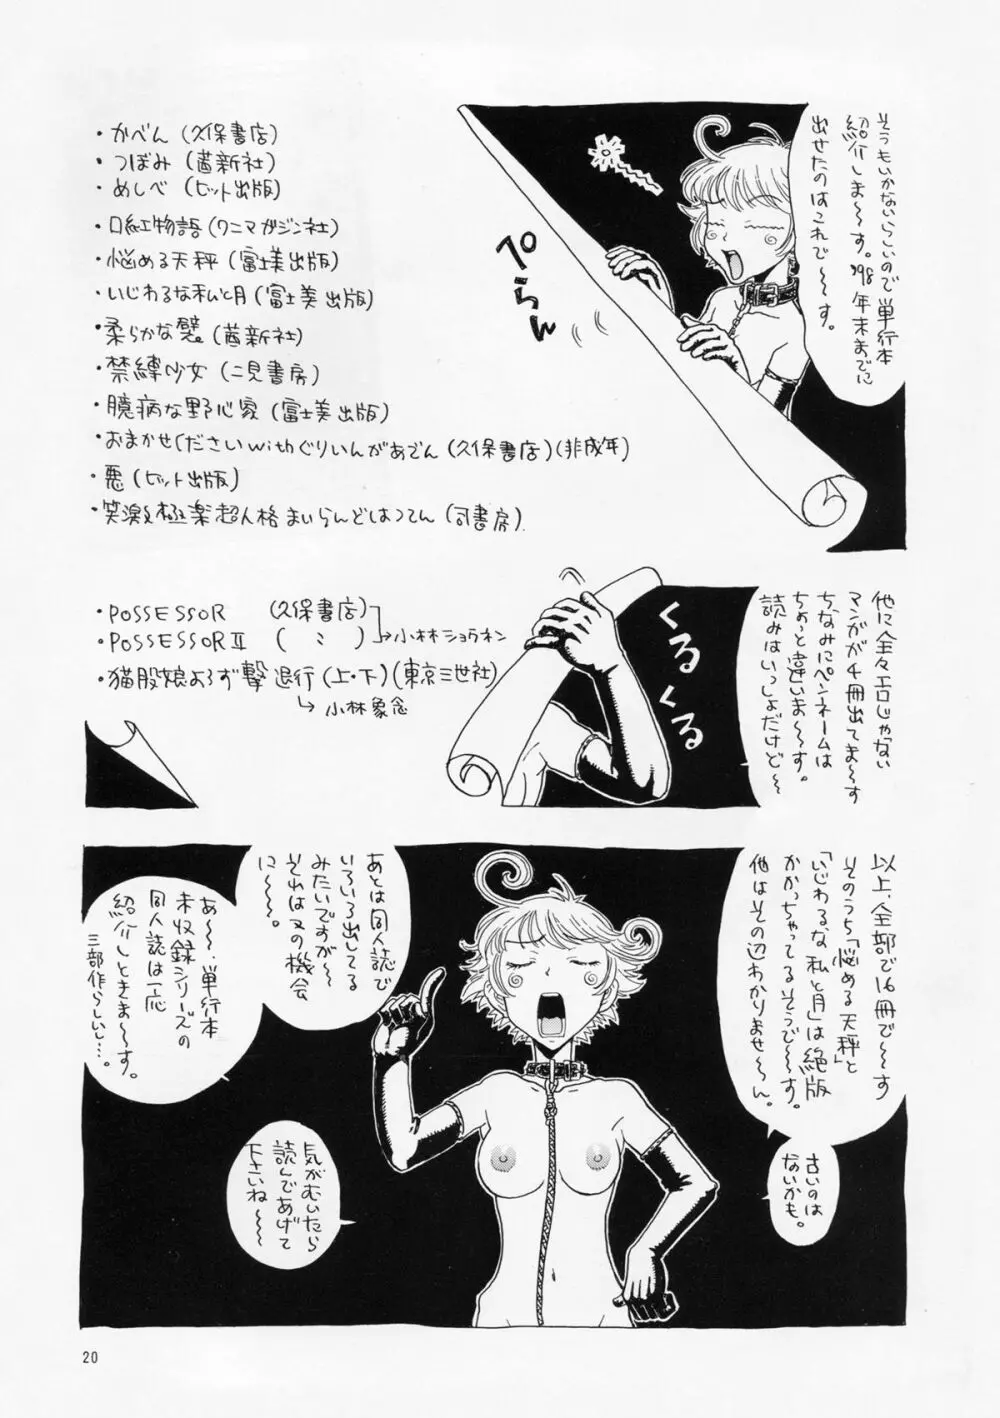 そうもいかないらしいので単行本
紹介しま〜す。'98年末までに
出せたのはこれで〜〜す。
ぺらん
・かべん(久保書店)
・つぼみ(茜新社)
・めしべ(ヒット出版)
・口紅物語(ワニマガジン社)
・悩める天秤(富士美出版)
・いじわるな私と月(富士美出版)
・柔らかな襞。(茜新社)
・禁縛少女(二見書房)
・臆病な野心家(富士美出版)
・おまかせください withぐりいんがあでん(久保書店)(非成年)
・悪(ヒット出版)
・笑激極楽超人格まいらんどはつでん(司書房)
他に全々エロじゃない
マンガが4冊出てま〜す
ちなみにペンネームは
ちょっと違いま〜〜す。
読みはいっしょだけど〜
くるくる
・POSSESSOR (久保書店)
・POSSESSORⅡ ( 〃 )
→小林ショウネン
・猫股娘よろず撃退行(上・下)(東京三世社)
→小林象念
以上、全部で16冊で〜す
そのうち「悩める天秤」と
「いじわるな私と月」は絶版
かかっちゃってるそうで〜す。
他はその辺わかりませ〜〜ん。
古いのは
ないかも。
あとは同人誌で
いろいろ出してる
みたいですが〜
それは又の機会
に〜〜。
あ〜〜、単行本
未収録シリーズの
同人誌は一応
紹介しときま〜す。
三部作らしいし…。
気がむいたら
読んであげて
下さいね〜〜
20